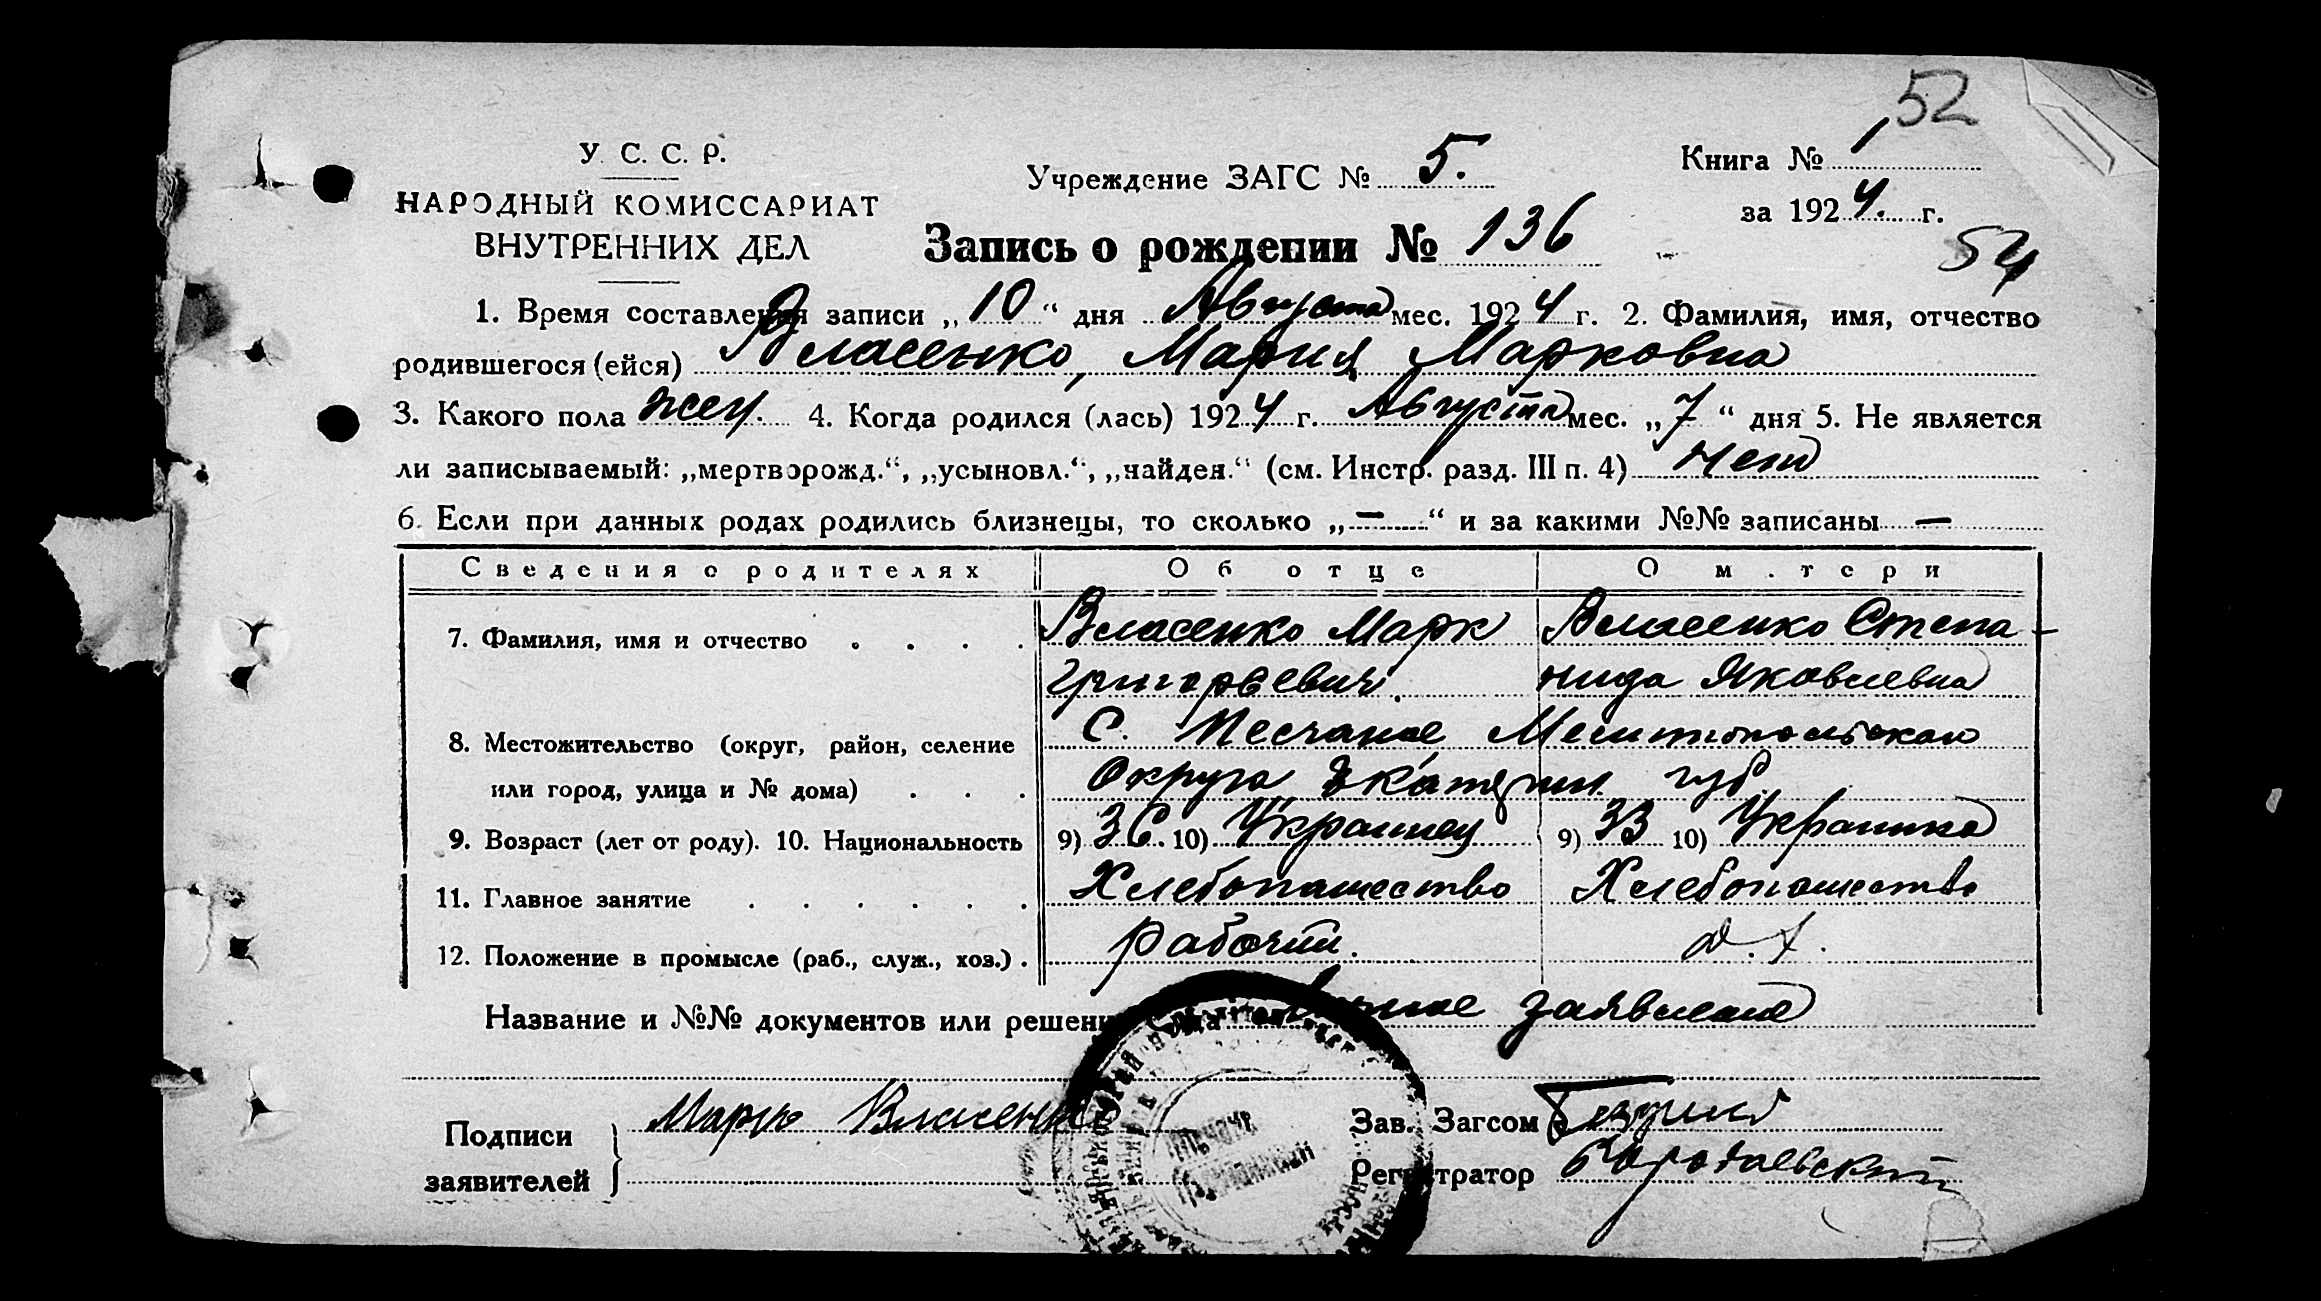 52
У. С. С. Р.
Учреждение ЗАГС № 5.
Книга № 1
НАРОДНЫЙ КОМИССАРИАТ
ВНУТРЕННИХ ДЕЛ
за 1924. г.
Запись о рождении № 136
54
1. Время составления записи „10“ дня Августа мес. 1924 г. 2. Фамилия, имя, отчество
родившегося (ейся) Власенко, Мария Марковна
3. Какого пола жен. 4. Когда родился (лась) 1924 г. Августа мес. „7“ дня 5. Не является
ли записываемый: „мертворожд.“, „усыновл.“, „найден.“ (см. Инстр. разд. III п. 4) нет
6. Если при данных родах родились близнецы, то сколько „—“ и за какими №№ записаны —
Сведения о родителях Об отце О м.тери
7. Фамилия, имя и отчество . . . . Власенко Марк Власенко Степа-
Григорьевич. нида Яковлевна
8. Местожительство (округ, район, селение С. Песчаное Мелитопольскаго
или город, улица и № дома) . . . Округа Екатерин. губ.
9. Возраст (лет от роду). 10. Национальность 9) 36. 10) Украинец 9) 33 10) Украинка
11. Главное занятие . . . . . . Хлебопашество Хлебопашество
12. Положение в промысле (раб., служ., хоз.) . Рабочий. д. х.
Название и №№ документов или решени заявление
Подписи
заявителей
Марко Власенко
Зав. Загсом
Регистратор